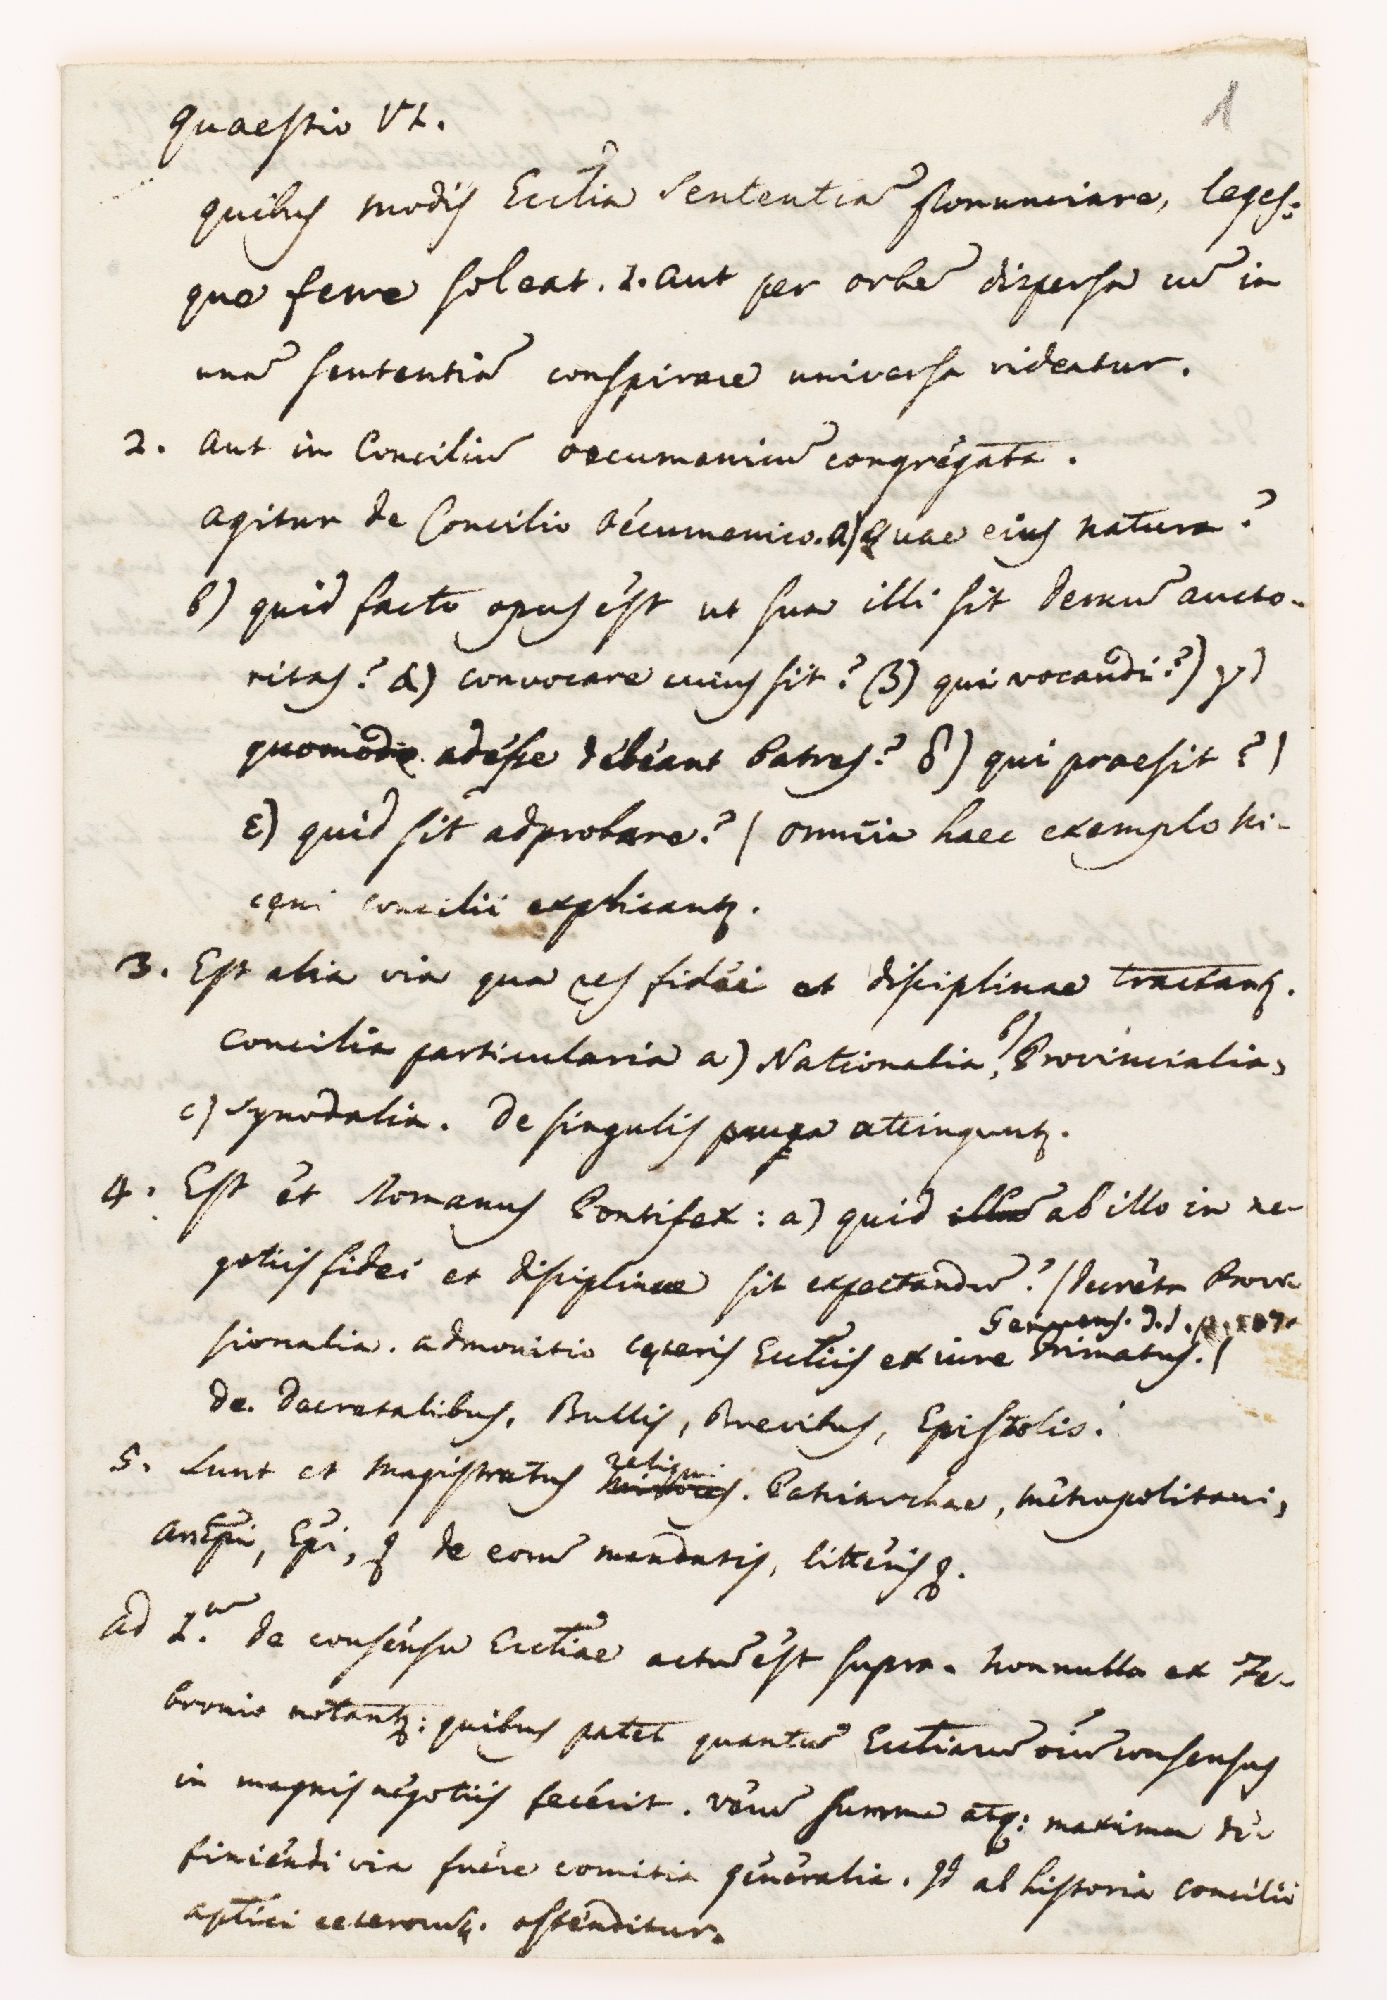 1
Quaestio VI.
quibus modis Eccl̃ia sententiam̃ pronunciare, leges:
que ferre soleat. 1. aut per orbẽ dispersa cũ in
unã sententiã conspirare universa videatur.
2. aut in Conciliũ oecumenicũ congregata.
agitur de Concilio oecumenico. a) Quae eius natura?
b) quid facto opus est ut sua illi sit demũ aucto-
ritas? α) convocare cuius sit? β) qui vocandi?) γ)
quomodo adesse debeant Patres? δ) qui praesit?)
ε) quid sit adprobare? / omnia haec exemplo Ni-
caeni concilii explicantʒ.
3. Est alia via qua res fidei et disciplinae tractantʒ.
Concilia particularia a) Nationalia, b) Provincialia,
c) Synodalia. de singulis pauca attinguntʒ.
4. Est et Romanus Pontifex: a) quid ab illo in ne-
gotiis fidei et disciplinae sit expectandũ? / Decreta Provi
sionalia. admonitio ceteris Eccl̃iis ex iure Primatus. /
de Decretalibus, Bullis, Brevibus, Epistolis.
5. Sunt et Magistratus reliqui. Patriarchae, metropolitani,
Arc̃hEp̃i, Ep̃i, de eorũ mandatis, litteris
ad 1.um de consensu Eccl̃iae actũ est supra. nonnulla ex Fe-
bronio notantʒ: quibus patet quantũ Eccl̃iarũ oĩũ consensus
in magnis negotiis fecerit. verũ summa atq: maxima de-
finiendi via fuere comitia generalia. Id ab historia concilii
ap̃tici ceterorumq. ostenditur.